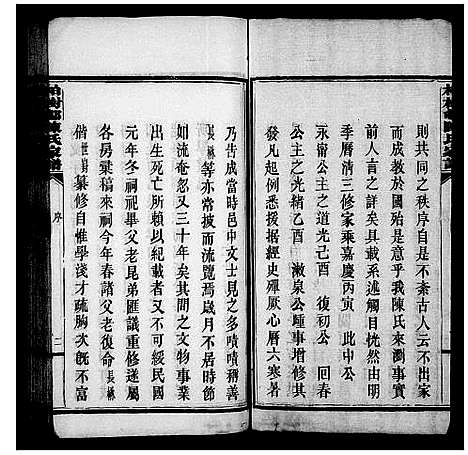 則共同之秩序自是不紊古人云不出家
而成敎於國殆是意乎我陳氏來瀏事實
前人言而詳矣具載系述觸目恍然由明
季曆清三修家乘嘉慶丙寅 此中公
永甯公主之道光己酉 復初公 回春
公主之光緒乙酉 漱泉公踵事增修其
發凡起例悉援據經史殫厥心曆六寒暑
乃吿成當時邑中文士見之多嘖嘖稱善
長縣等亦常披而流覽焉歲月不居時節
如流奄忽又三十年矣其間之文物事業
出生死亡所賴以紀載者又不可緩民國
元年冬祠祀畢父老昆弟匯議重修遂屬
各房彙稿來祠今年春諸父老復命長縣
偕 纂修自惟學淺才疏胸次旣不富
氏家譜
序
二